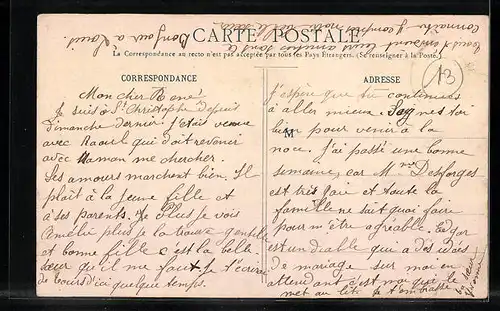 CARTE POSTALE
La Correspondance au recto n'est pas acceptée par tous les Pays Etrangers. (Se renseigner à la Poste.)
CORRESPONDANCE
Mon cher René
Je suis à St Christophe depuis
Dimanche dernier. J'étais venue
avec Raoul qui doit retenir
avec Maman me chercher.
Les amours marchent bien. Il
plaît à la jeune fille et
à ses parents. Plus je vois
Amélie plus je la trouve gentille
et bonne fille c'est la belle-
sœur qu'il me faut. Je t'écrirai
de Tours d'ici quelque temps.
ADRESSE
13
J'espère que tu continues
à aller mieux. Soignes toi
bien pour venir à la
noce. J'ai passé une bonne
semaine, car M. Desforges
est très gaie et toute la
famille ne sait quoi faire
pour m'être agréable. Edgar
est un diable qui a des idées
de mariage sur moi en
attendant c'est moi qui le
met au lit. Je t'embrasse
ta sœur
Bonjour à Louis.